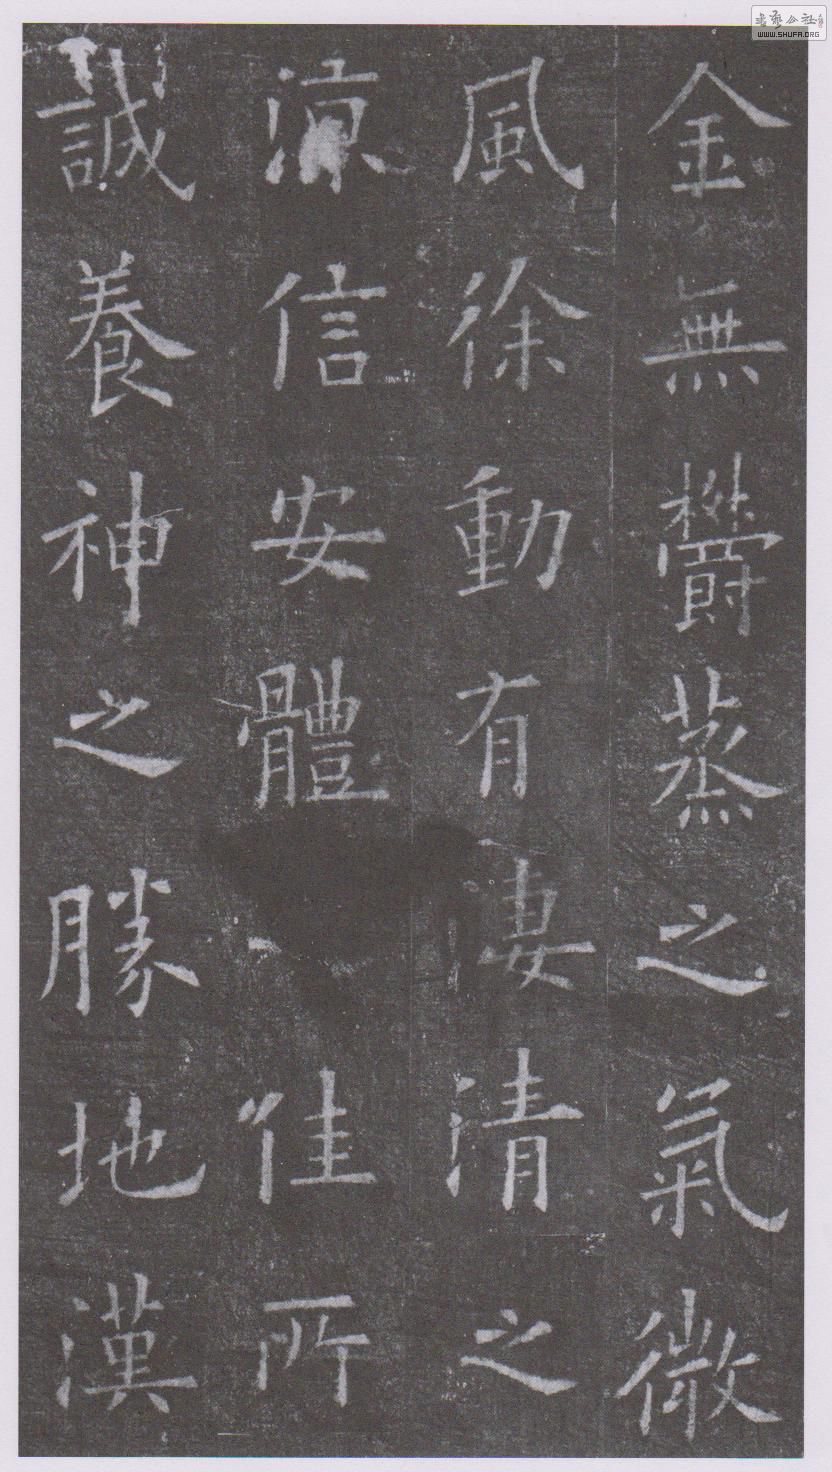 金無欝蒸之氣微
風徐動有淒清之
涼信安體佳所
誠養神之勝地漢
WWW.SHUFA.ORG